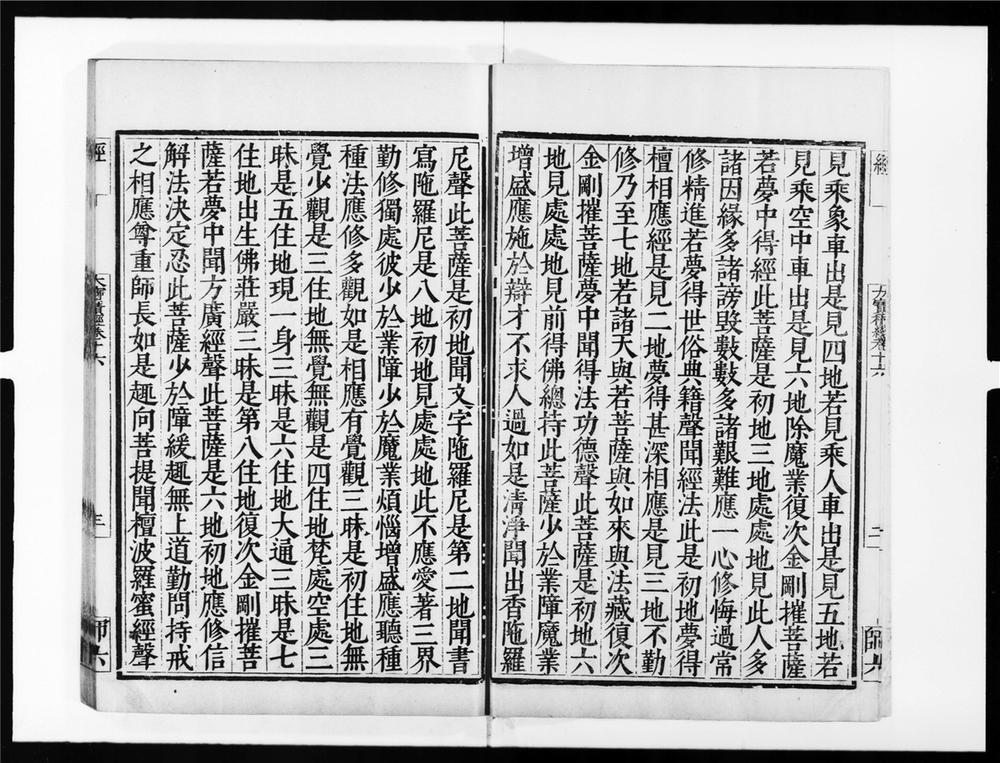 見乘象車出是見四地若見乘人車出是見五地若
見乘空中車出是見六地除魔業復次金剛摧菩薩
若夢中得經此菩薩是初地三地處處地見此人多
諸因緣多諸謗毀數數多諸艱難應一心修悔過常
修精進若夢得世俗典籍聲聞經法此是初地夢得
檀相應經是見二地夢得甚深相應是見三地不勤
修乃至七地若諸天與若菩薩與如來與法藏復次
金剛摧菩薩夢中聞得法功德聲此菩薩是初地六
地見處處地見前得佛總持此菩薩少於業障魔業
增盛應施於辯才不求人過如是清淨聞出香陁羅
尼聲此菩薩是初地聞文字陁羅尼是第二地聞書
寫陁羅尼是八地初地見處處地此不應愛著三界
勤修獨處彼少於業障少於魔業煩惱增盛應聽種
種法應修多觀如是相應有覺觀三昧是初住地無
覺少觀是三住地無覺無觀是四住地梵處空處三
昧是五住地現一身三昧是六住地大通三昧是七
住地出生佛莊嚴三昧是第八住地復次金剛摧菩
薩若夢中聞方廣經聲此菩薩是六地初地應修信
解法決定忍此菩薩少於障緩趣無上道勤問持戒
之相應尊重師長如是趣向菩提聞檀波羅蜜經聲
經
大寶積經卷十六
三